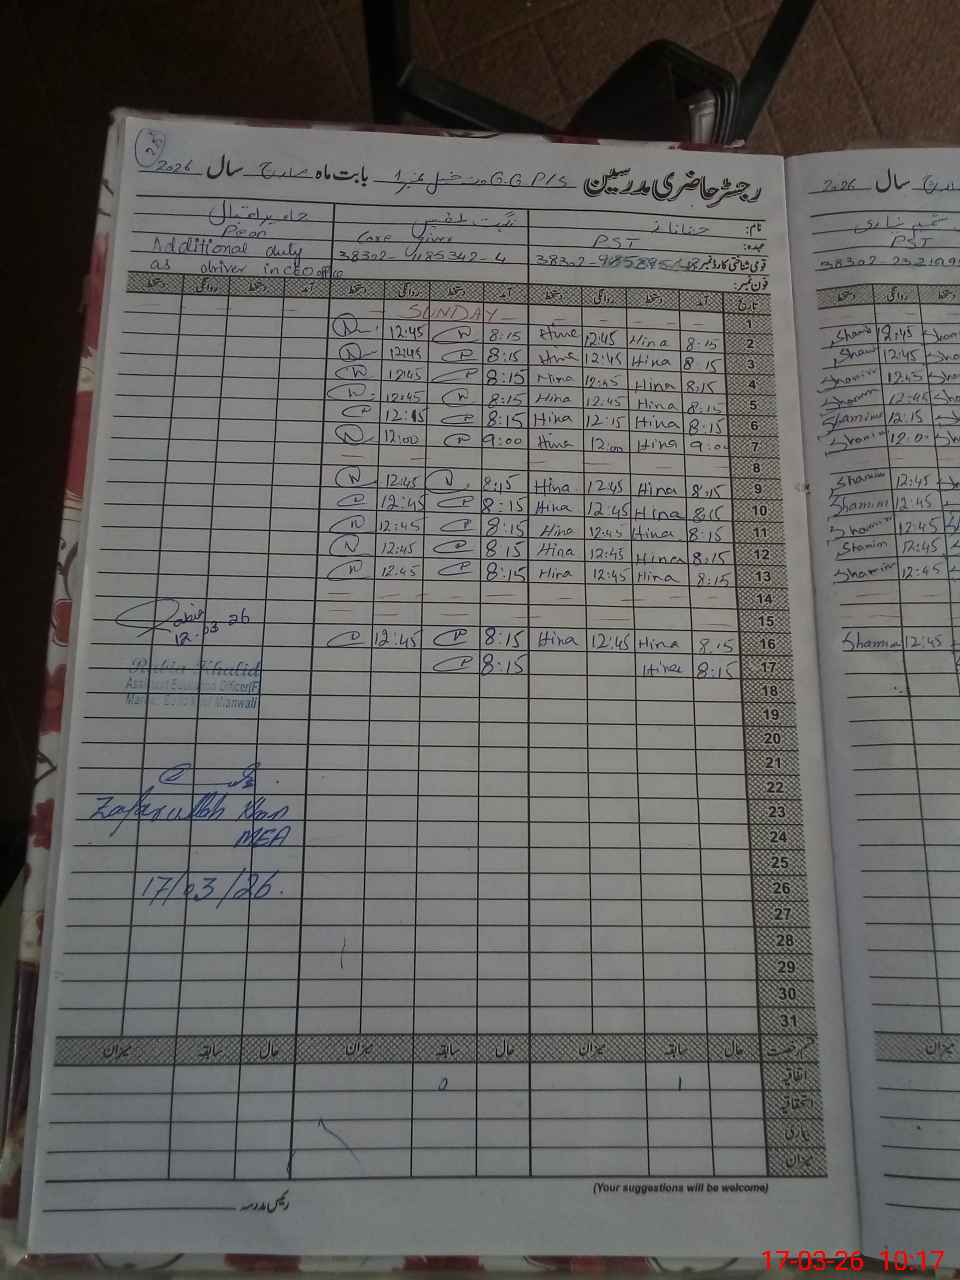 رجسٹر حاضری مدرسین G.G.P/S بابت ماہ مارچ سال 2026
نام: حنا ناز
عہدہ: PST Care Giver Peon
قومی شناختی کارڈ نمبر 38302- 38302-4185342-4 Additional duty
فون نمبر: as driver in CEO office
تاریخ آمد دستخط روانگی دستخط آمد دستخط روانگی دستخط آمد دستخط روانگی دستخط
1 SUNDAY
2 8:15 Hina 12:45 Hina 8:15 12:45
3 8:15 Hina 12:45 Hina 8:15 12:45
4 8:15 Hina 12:45 Hina 8:15 12:45
5 8:15 Hina 12:45 Hina 8:15 12:45
6 8:15 Hina 12:15 Hina 8:15 12:15
7 9:00 Hina 12:00 Hina 9:00 12:00
8
9 8:15 Hina 12:45 Hina 8:15 12:45
10 8:15 Hina 12:45 Hina 8:15 12:45
11 8:15 Hina 12:45 Hina 8:15 12:45
12 8:15 Hina 12:45 Hina 8:15 12:45
13 8:15 Hina 12:45 Hina 8:15 12:45
14
15
16 8:15 Hina 12:45 Hina 8:15 12:45
17 8:15 Hina 8:15
18
19
20
21
22
23
24
25
26
27
28
29
30
31
Rabia
12.03.26
Rabia Khalid
Assistant Education Officer(F)
Mianwali
Zafarullah Khan
MEA
17/03/26.
قسم رخصت حال سابقہ میزان حال سابقہ میزان حال سابقہ میزان
اتفاقیہ 1 0
استحقاقیہ
بیماری
میزان
(Your suggestions will be welcome)
رئیس مدرسہ
2026 سال مارچ
PST
38302-
دستخط روانگی دستخط
Shamim 12:45
Shamim 12:45
Shamim 12:45
Shamim 12:45
Shamim 12:15
Shamim 12:00
Shamim 12:45
Shamim 12:45
Shamim 12:45
Shamim 12:45
Shamim 12:45
Shamim 12:45
میزان
17-03-26 10:17